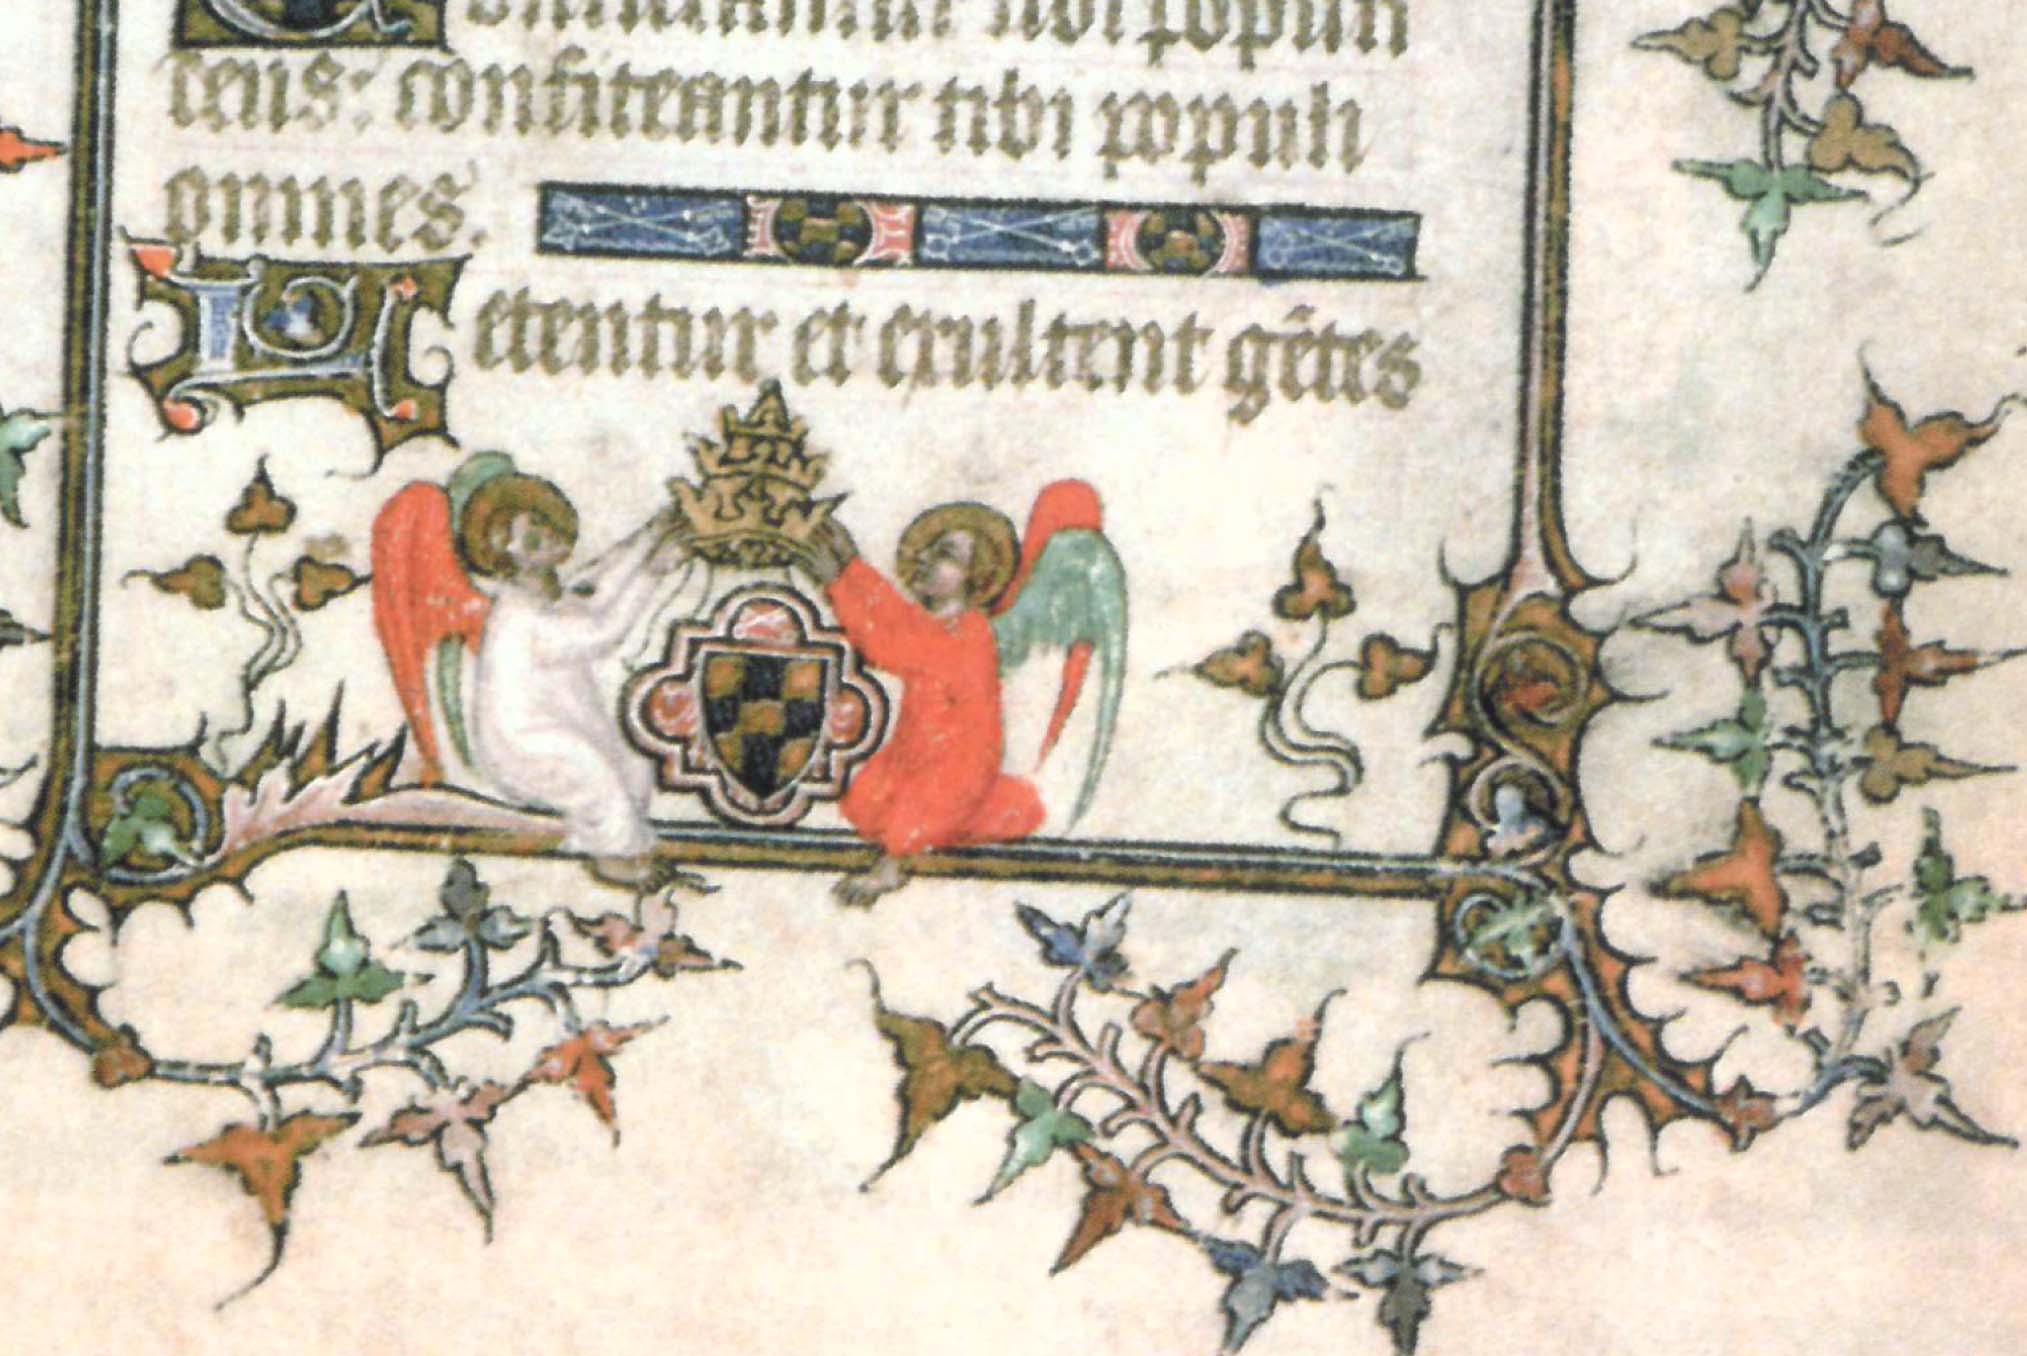 Confiteantur tibi populi
deus: confiteantur tibi populi
omnes.
Letentur et exultent gētes